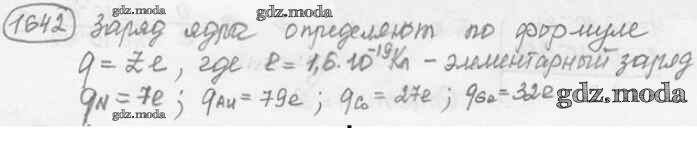 1642 заряд ядра определяют по формуле
gdz.moda
gdz.moda
q = Ze, где e = 1,6·10⁻¹⁹Кл - элементарный заряд
qN = 7e; qAu = 79e; qCo = 27e; qGe = 32e
gdz.moda
gdz.moda